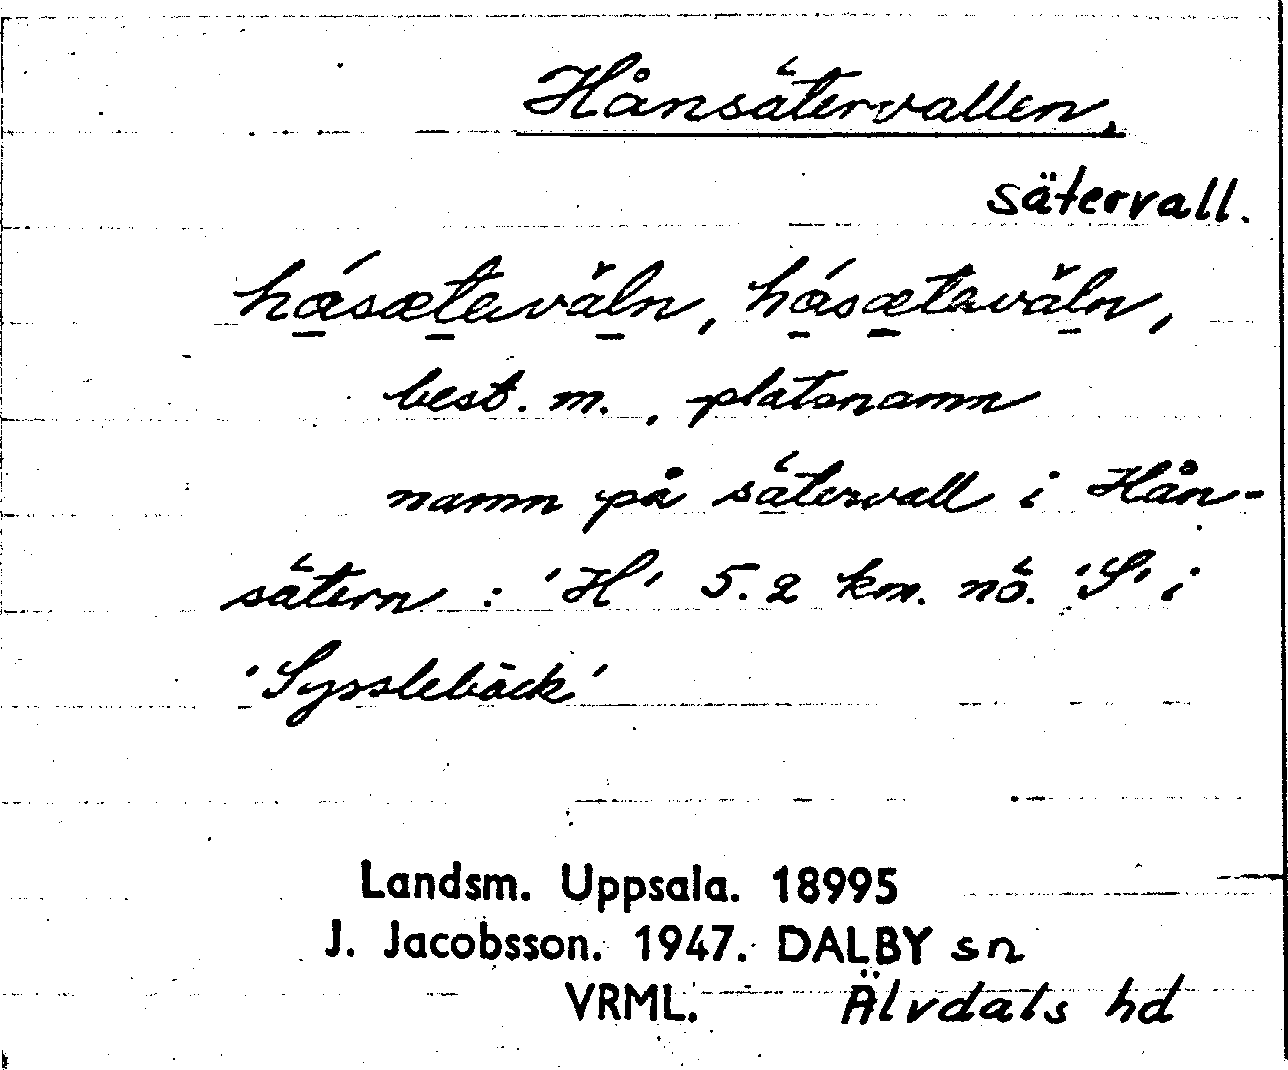 Hånsätervallen,
sätervall.
hásætavä̆ln, hásætavä̆ln,
best. m., platsnamn
namn på sätervall i Hån-
sätern : 'H' 5.2 km. nö. 'S' i
'Sysslebäck'
Landsm. Uppsala. 18995
J. Jacobsson. 1947. DALBY sn
VRML. Älvdals hd